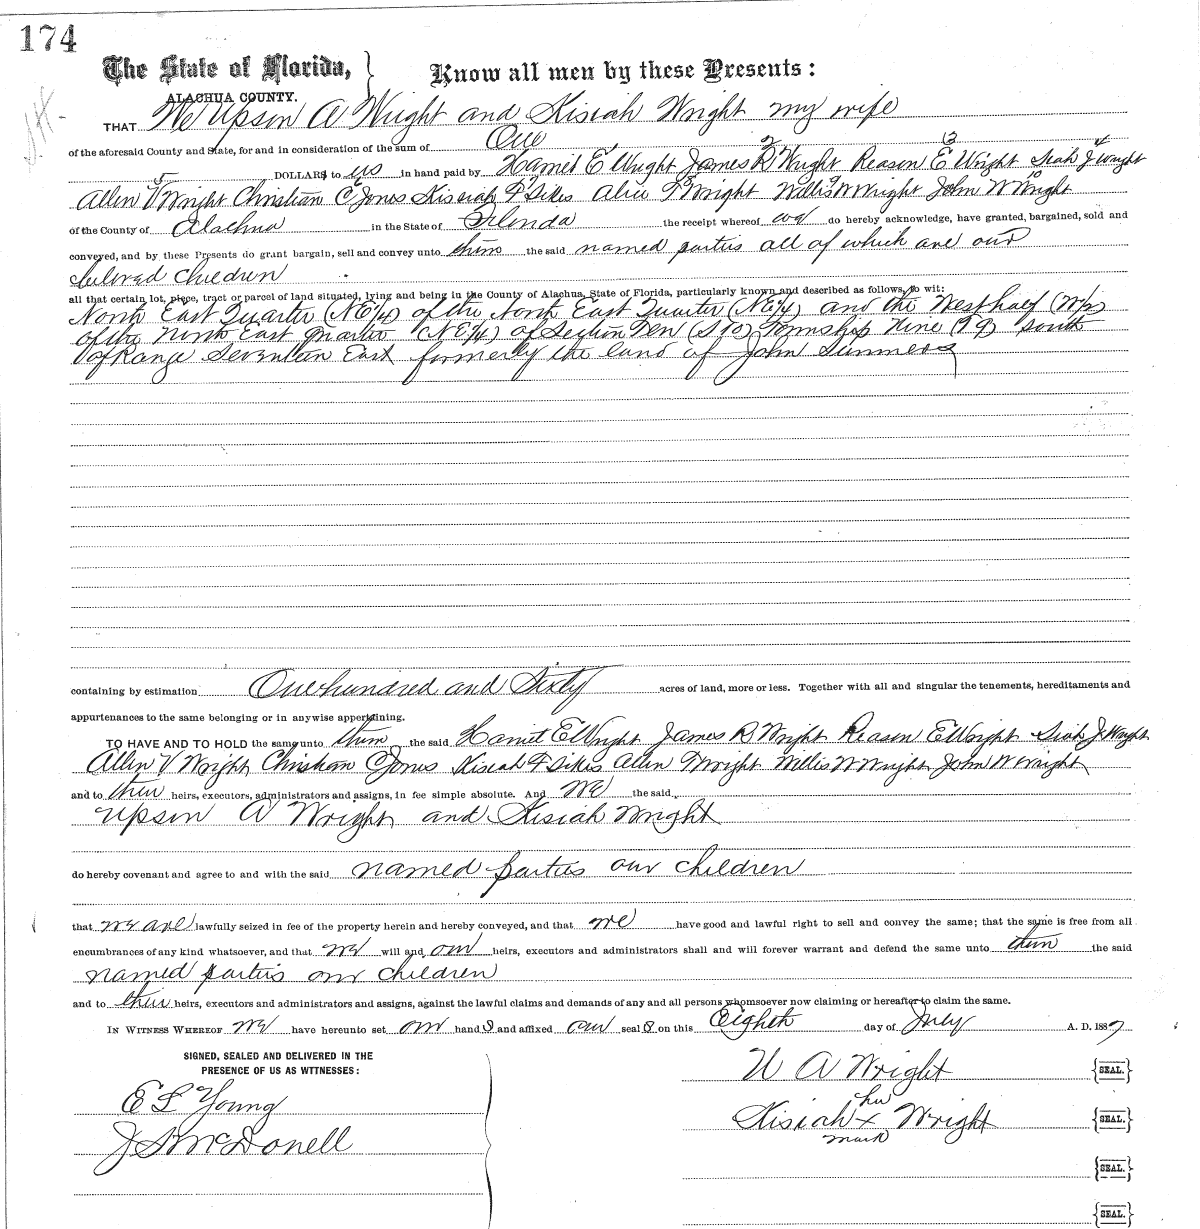 174
The State of Florida, } Know all men by these Presents:
ALACHUA COUNTY.
THAT We Upson A Wright and Kisiah Wright my wife
of the aforesaid County and State, for and in consideration of the sum of One
1 2 3 4
DOLLARS to us in hand paid by Harriet E Wright James R Wright Reason E Wright Siah J Wright
5 6
Allen V Wright Christian C Jones Kisiah F Sikes Alice F Wright Willis W Wright John W Wright
10
of the County of Alachua in the State of Florida the receipt whereof we do hereby acknowledge, have granted, bargained, sold and
conveyed, and by these Presents do grant bargain, sell and convey unto them the said named parties all of which are our
beloved children
all that certain lot, piece, tract or parcel of land situated, lying and being in the County of Alachua, State of Florida, particularly known and described as follows, to wit:
North East Quarter (NE¼) of the North East Quarter (NE¼) and the West half (W½)
of the North East Quarter (NE¼) of Section Ten (S 10) Township Nine (T9) south
of Range Seventeen East formerly the land of John Summers
containing by estimation One hundred and Sixty acres of land, more or less. Together with all and singular the tenements, hereditaments and
appurtenances to the same belonging or in anywise appertining.
TO HAVE AND TO HOLD the same unto them the said Harriet E Wright James R Wright Reason E Wright Siah J Wright
Allen V Wright Christian C Jones Kisiah F Sikes Allen F Wright Willis W Wright John W Wright
and to their heirs, executors, administrators and assigns, in fee simple absolute. And We the said
Upson A Wright and Kisiah Wright
do hereby covenant and agree to and with the said named parties our children
that we are lawfully seized in fee of the property herein and hereby conveyed, and that we have good and lawful right to sell and convey the same; that the same is free from all
encumbrances of any kind whatsoever, and that we will and our heirs, executors and administrators shall and will forever warrant and defend the same unto them the said
named parties our children
and to their heirs, executors and administrators and assigns, against the lawful claims and demands of any and all persons whomsoever now claiming or hereafter to claim the same.
IN WITNESS WHEREOF we have hereunto set our hands and affixed our seals on this Eighth day of July A. D. 1887
SIGNED, SEALED AND DELIVERED IN THE
PRESENCE OF US AS WITNESSES:
U A Wright {SEAL.}
E L Young
her
Kisiah x Wright {SEAL.}
mark
J S McDonell
{SEAL.}
{SEAL.}